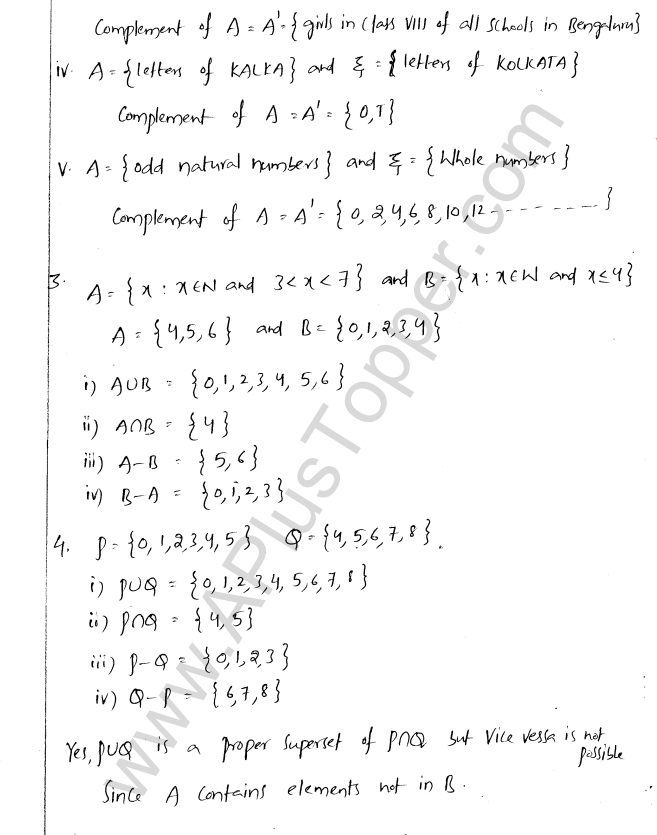 Complement of A = A' = {girls in Class VIII of all schools in Bengaluru}
iv. A = {letters of KALKA} and ξ = {letters of KOLKATA}
Complement of A = A' = {O,T}
V. A = {odd natural numbers} and ξ = {Whole numbers}
Complement of A = A' = {0, 2,4,6,8,10,12 - - - - - - - - - }
3. A = {x : x∈N and 3<x<7} and B = {x : x∈W and x≤4}
A = {4,5,6} and B = {0,1,2,3,4}
i) A∪B = {0,1,2,3,4, 5,6}
ii) A∩B = {4}
iii) A-B = {5,6}
iv) B-A = {0,1,2,3}
4. P = {0,1,2,3,4,5} Q = {4,5,6,7,8}.
i) P∪Q = {0,1,2,3,4, 5,6,7,8}
ii) P∩Q = {4,5}
iii) P-Q = {0,1,2,3}
iv) Q-P = {6,7,8}
Yes, P∪Q is a proper superset of P∩Q but Vice vessa is not possible
Since A contains elements not in B.
www.APlusTopper.com